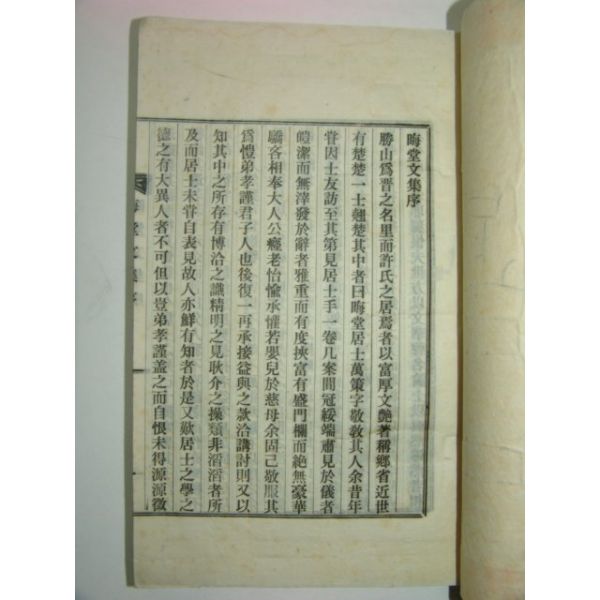 晦堂文集序
勝山爲晋之名里而許氏之居焉者以富厚文艶著稱鄕省近世
有楚楚一士翹楚其中者曰晦堂居士萬策字敬敎其人余昔年
甞因士友訪至其第見居士手一卷几案間冠綏端肅見於儀者
皚潔而無滓發於辭者雅重而有度挾富有盛門欄而絶無豪華
驕吝相奉大人公癃老怡愉承懽若嬰兒於慈母余固已敬服其
爲愷弟孝謹君子人也後復一再承接益與之款洽講討則又以
知其中之所存有博洽之識精明之見耿介之操類非滔滔者所
及而居士未甞自表見故人亦鮮有知者於是又歎居士之學之
德之有大異人者不可但以豈弟孝謹盖之而自恨未得源源徵